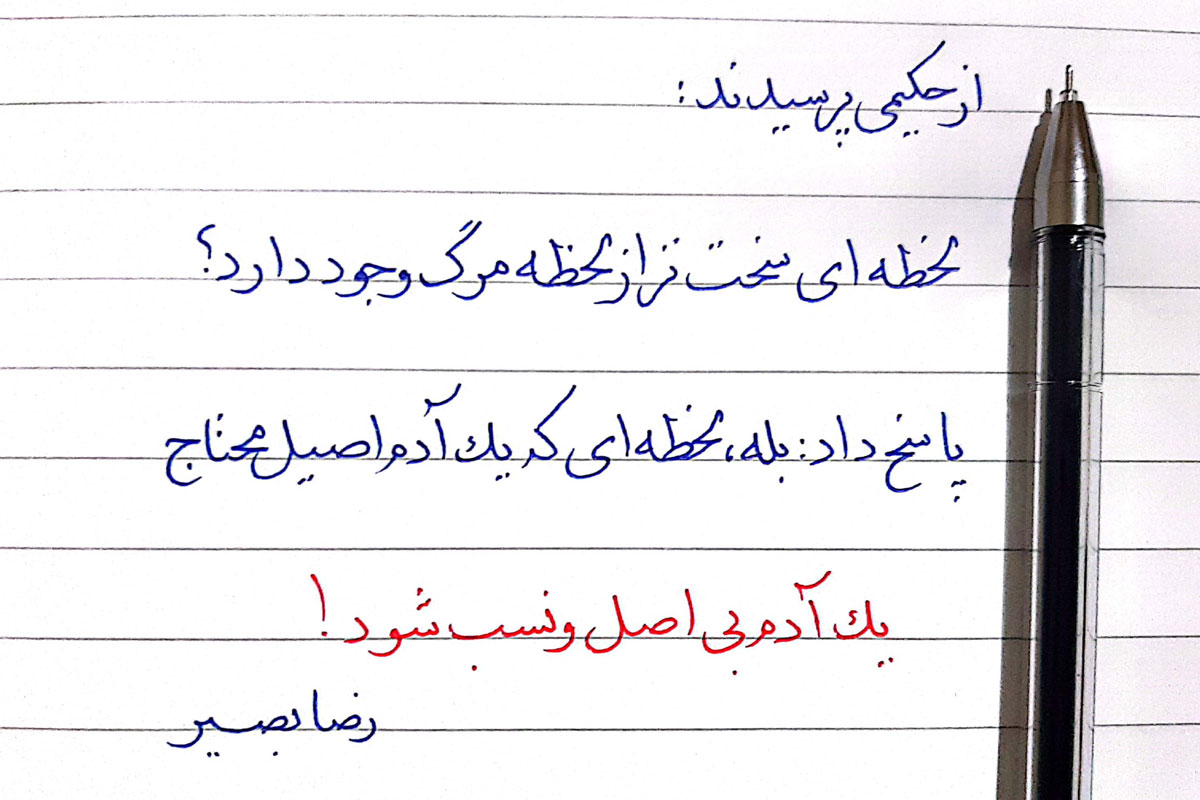 از حکیمی پرسیدند:
لحظه ای سخت تر از لحظه مرگ وجود دارد؟
پاسخ داد: بله، لحظه ای که یک آدم اصیل محتاج
یک آدم بی اصل و نسب شود!
رضا بصیر